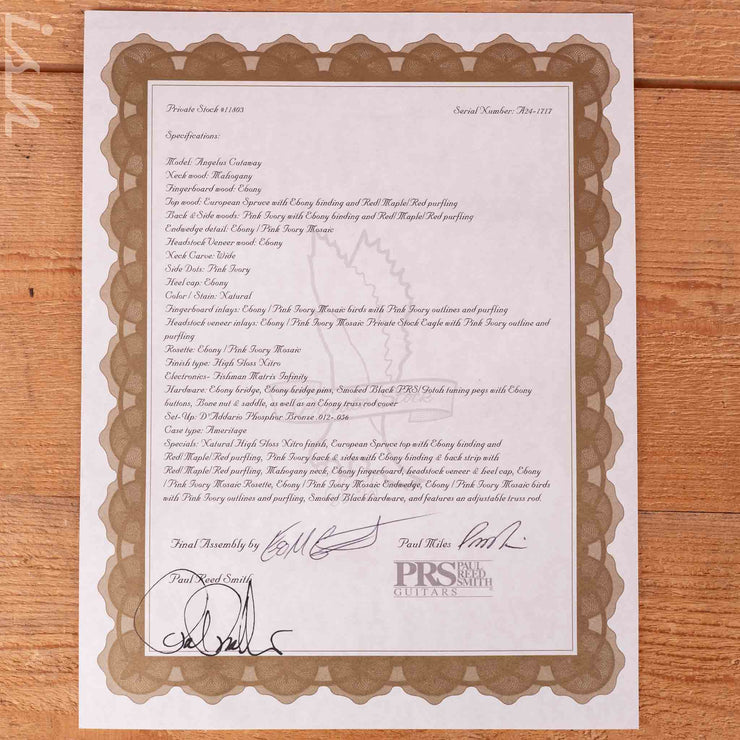 ish
Private Stock #11803 Serial Number: A24-1717
Specifications:
Model: Angelus Cutaway
Neck wood: Mahogany
Fingerboard wood: Ebony
Top wood: European Spruce with Ebony binding and Red/Maple/Red purfling
Back & Side woods: Pink Ivory with Ebony binding and Red/Maple/Red purfling
Endwedge detail: Ebony / Pink Ivory Mosaic
Headstock Veneer wood: Ebony
Neck Carve: Wide
Side Dots: Pink Ivory
Heel cap: Ebony
Color / Stain: Natural
Fingerboard inlays: Ebony / Pink Ivory Mosaic birds with Pink Ivory outlines and purfling
Headstock veneer inlays: Ebony / Pink Ivory Mosaic Private Stock Eagle with Pink Ivory outline and
purfling
Rosette: Ebony / Pink Ivory Mosaic
Finish type: High Gloss Nitro
Electronics- Fishman Matrix Infinity
Hardware: Ebony bridge, Ebony bridge pins, Smoked Black PRS/Gotoh tuning pegs with Ebony
buttons, Bone nut & saddle, as well as an Ebony truss rod cover
Set-Up: D'Addario Phosphor Bronze .012-.056
Case type: Ameritage
Specials: Natural High Gloss Nitro finish, European Spruce top with Ebony binding and
Red/Maple/Red purfling, Pink Ivory back & sides with Ebony binding & back strip with
Red/Maple/Red purfling, Mahogany neck, Ebony fingerboard, headstock veneer & heel cap, Ebony
/ Pink Ivory Mosaic Rosette, Ebony / Pink Ivory Mosaic Endwedge, Ebony / Pink Ivory Mosaic birds
with Pink Ivory outlines and purfling, Smoked Black hardware, and features an adjustable truss rod.
Final Assembly by Paul Miles
Paul Reed Smith
PRS PAUL
REED
SMITH
GUITARS